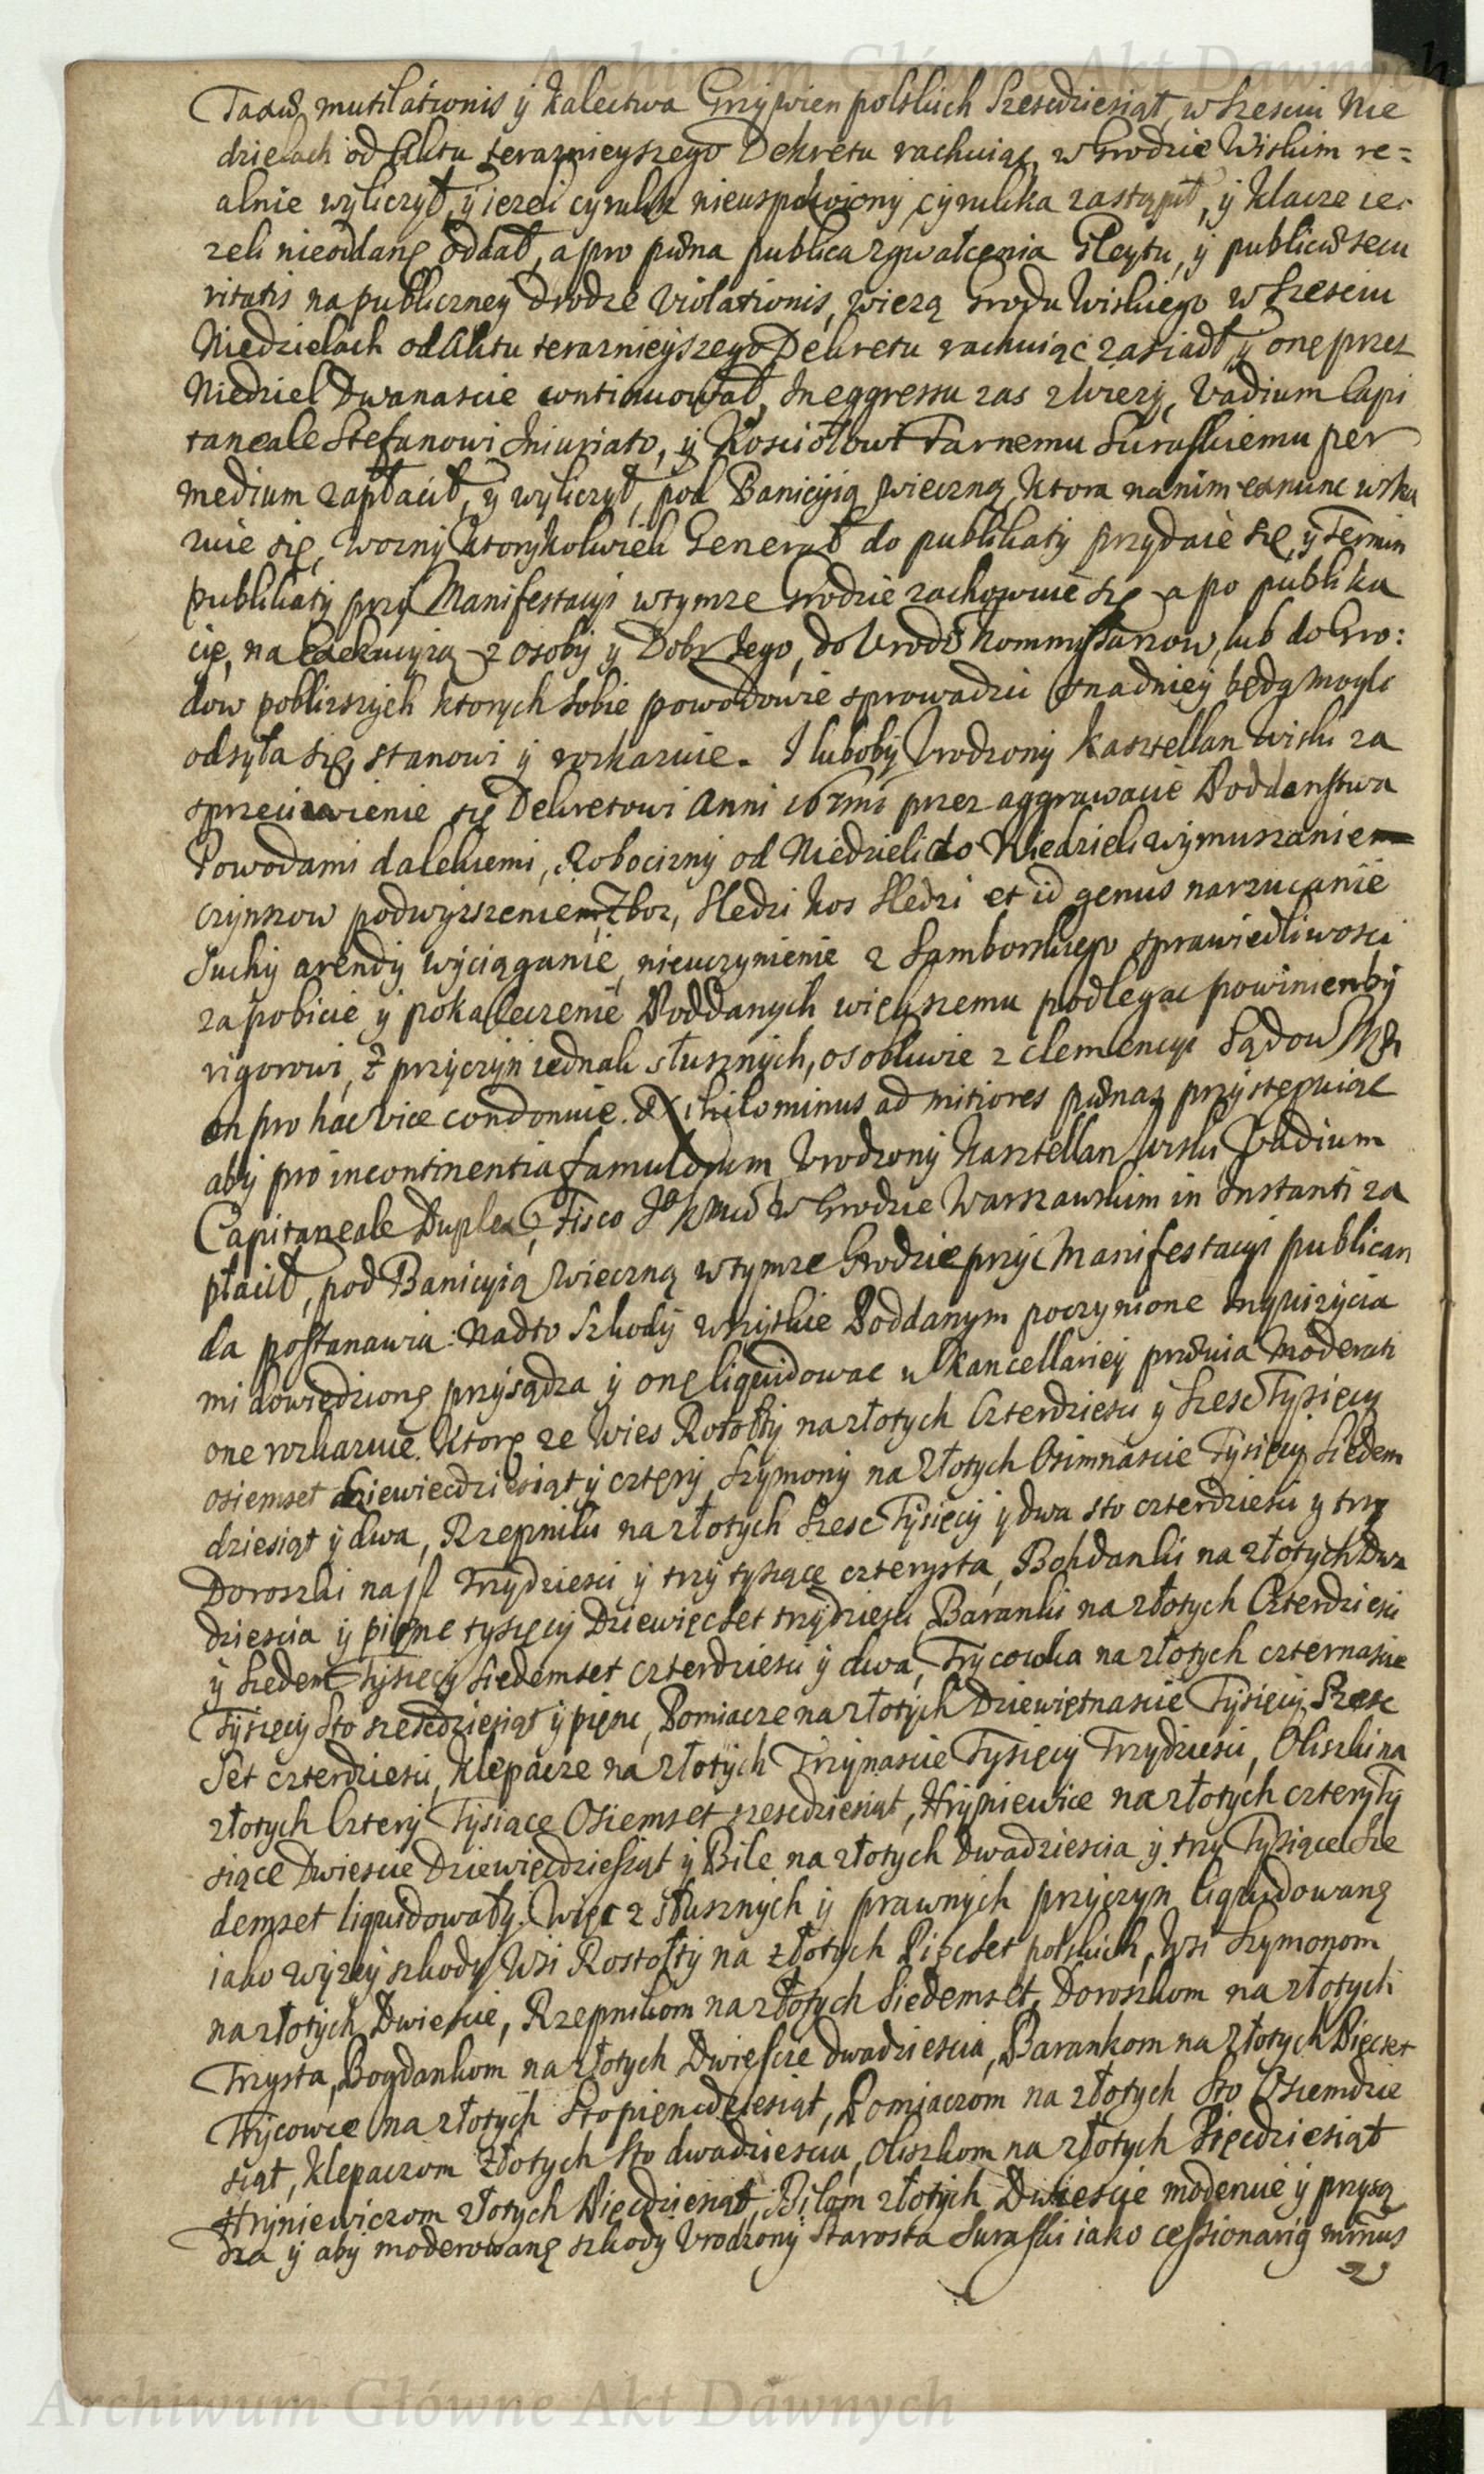 Archiwum Główne Akt Dawnych
mutilationis ÿ kalectwa Grzywien polskich Szescdziesiąt, w szesciu Nie
dzielach od Aktu terazneyszego Dekretu rachuiąc, w Grodzie Wiskim re=
alnie wyliczył, y iezeli cyrulik nieuspokoiony, cyrulika zastąpił, ÿ klacze ie:
zeli nieoddanę oddał, a pro pæna publica zgwałcenia Gleytu, ÿ publicæ secu
ritatis na publiczney drodze violationis, wiezą Grodu Wiskiego w szesciu
Niedzielach od Aktu terazniejszego Dekretu rachuiąc zasiadł, y onę przez
Niedziel Dwanascie continuował, In eggressu zas z wiezÿ, Vadium Capi
taneale Stefanowi Iniuriato, ÿ Kosciołowi Farnemu Suraskiemu per
medium zapłacił, ÿ wyliczył, pod Banicyią wieczną, ktora na nim ex nunc wska
zuie się, wozny ktorykolwiek Generał do publikaty przydaie się, y Termin
publikaty przy Manifestacyi w tymze Grodzie zachowuie się a po publika
cię, na Exekucyią z osoby y Dobr Iego, do Urodz Kommissarzow, lub do Gro:
dow poblizszych ktorych sobie powodowie sprowadzic snadniey będą mogli
odsyła się, stanowi ÿ rozkazuie. I luboby Urodzony Kasztellan wiski za
sprzeciwienie się Dekretowi Anni przez aggrawacie Poddanstwa
Powodami dalekiemi, Robocizny od Niedzieli do Niedzieli wymuszanie
czynszow podwyzszeniem, Zboz, Sledzi kos Sledzi et id genus narzucanie
Suchy arendy wyciąganie, nieuczynienie z Samborskiego sprawiedliwosci
za pobicie ÿ pokaleczenie Poddanych większemu podlegac powinienby
rigorowi, z przyczyn iednak słusznych, osobliwie z clemencyi Sądow
on pro hac vice condonuie. Nihilominus ad mitiores pænas przystępuiąc
aby pro incontinentia famulorum Urodzony Kasztellan wiski Vadium
Capitaneale Duplex, Fisco w Grodzie Warszawskim in Instanti za
płacił, pod Banicyią wieczną w tymze Grodzie przy Manifestacyi publican
da postanawia: Nadto Szkody wszytkie Poddanym poczynione Inquizycia
mi dowiedzionę przysądza ÿ onę liquidowac w kancellariey prævia Moderati
one rozkazuie. Ktorę ze Wies Rostołty na złotych Czterdziesci ÿ szesc Tysięcy
osiemset dziewiecdziesiąt ÿ cztery, Szymony na złotych Osimnascie Tysięcy Siedem
dziesiąt ÿ dwa, Rzepniki na złotych szesc Tysięcy ÿ dwa sto czterdziesci y trzy
Doroszki na fl Trzydziesci ÿ trzy tysiące czterysta, Bohdanki na złotych Dwa
dziescia ÿ pięnc tysięcy Dziewięcset trzydziesci, Baranki na złotych Czterdziesci
ÿ siedem Tysięcy siedemset czterdziesci ÿ dwa, Trycowka na złotych czternascie
Tysięcy Sto szescdziesiąt ÿ pięnc, Pomiacze na złotych Dziewiętnascie Tysięcy, Szesc
Set czterdziesci, Klepacze na złotych Trzynascie Tysięcy Trzydziesci, Oliszki na
złotych Cztery Tysiące Osiemset szescdziesiąt, Hryniewice na złotych cztery Ty
siące Dwiescie Dziewięcdziesiąt ÿ Bile na złotych Dwadziescia ÿ trzy Tysiące Sie
demset liquidowały. Więc z słusznych ÿ prawnych przyczyn liquidowanę
iako wyzey szkody Wsi Rostołty na złotych Pięcset polskich, Wsi Szymonom
na złotych Dwiescie, Rzepnikom na złotych Siedemset, Doroszkom na złotych
Trzysta, Bogdankom na złotych Dwiescie dwadziescia, Barankom na złotych Pięcset
Trycowce na złotych Sto pięncdziesiąt, Pomiaczom na złotych Sto Osiemdzie
siąt, Klepaczom złotych Sto dwadziescia, Oliszkom na złotych Pięcdziesiąt
Hryniewiczom złotych Pięcdziesiąt, Bilom złotych Dwiescie moderuie ÿ przysą
dza ÿ aby moderowanę szkody Urodzony Starosta Suraski iako cessionarius
Archiwum Główne Akt Dawnych